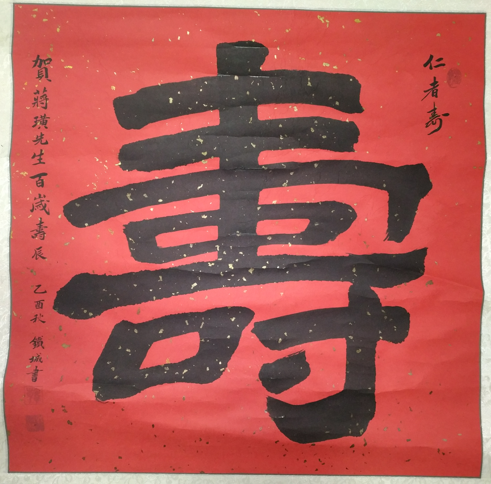 仁者寿
壽
賀蔣璜先生百歲壽辰
乙酉秋 鐵城書